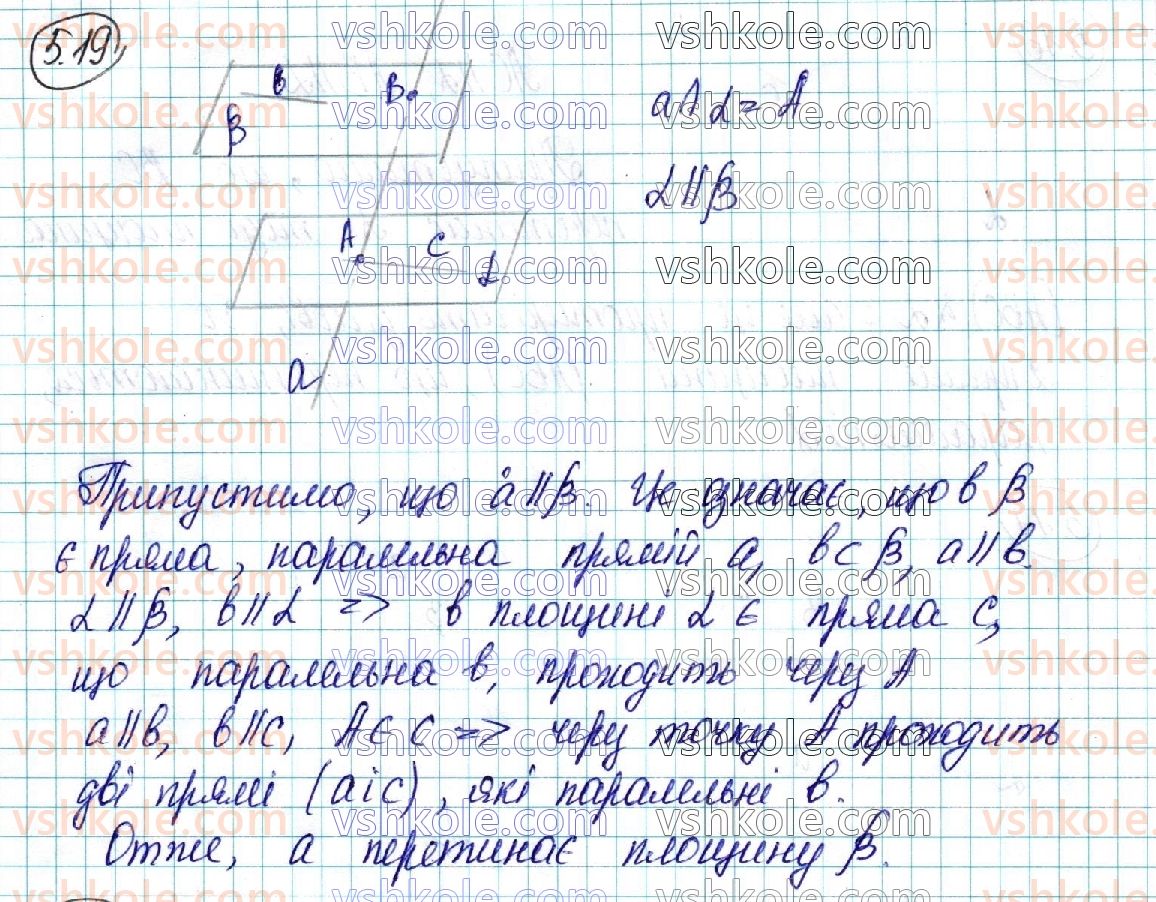 5.19
в B
β
a∩α = A
α∥β
A C
α
a
Припустимо, що a∥β. Це означає, що в β
є пряма, паралельна прямій a, b⊂β, a∥b.
α∥β, b∥α => в площині α є пряма c,
що паралельна b, проходить через A
a∥b, b∥c, A∈c => через точку A проходить
дві прямі (a і c), які паралельні b.
Отже, a перетинає площину β.
vshkole.com